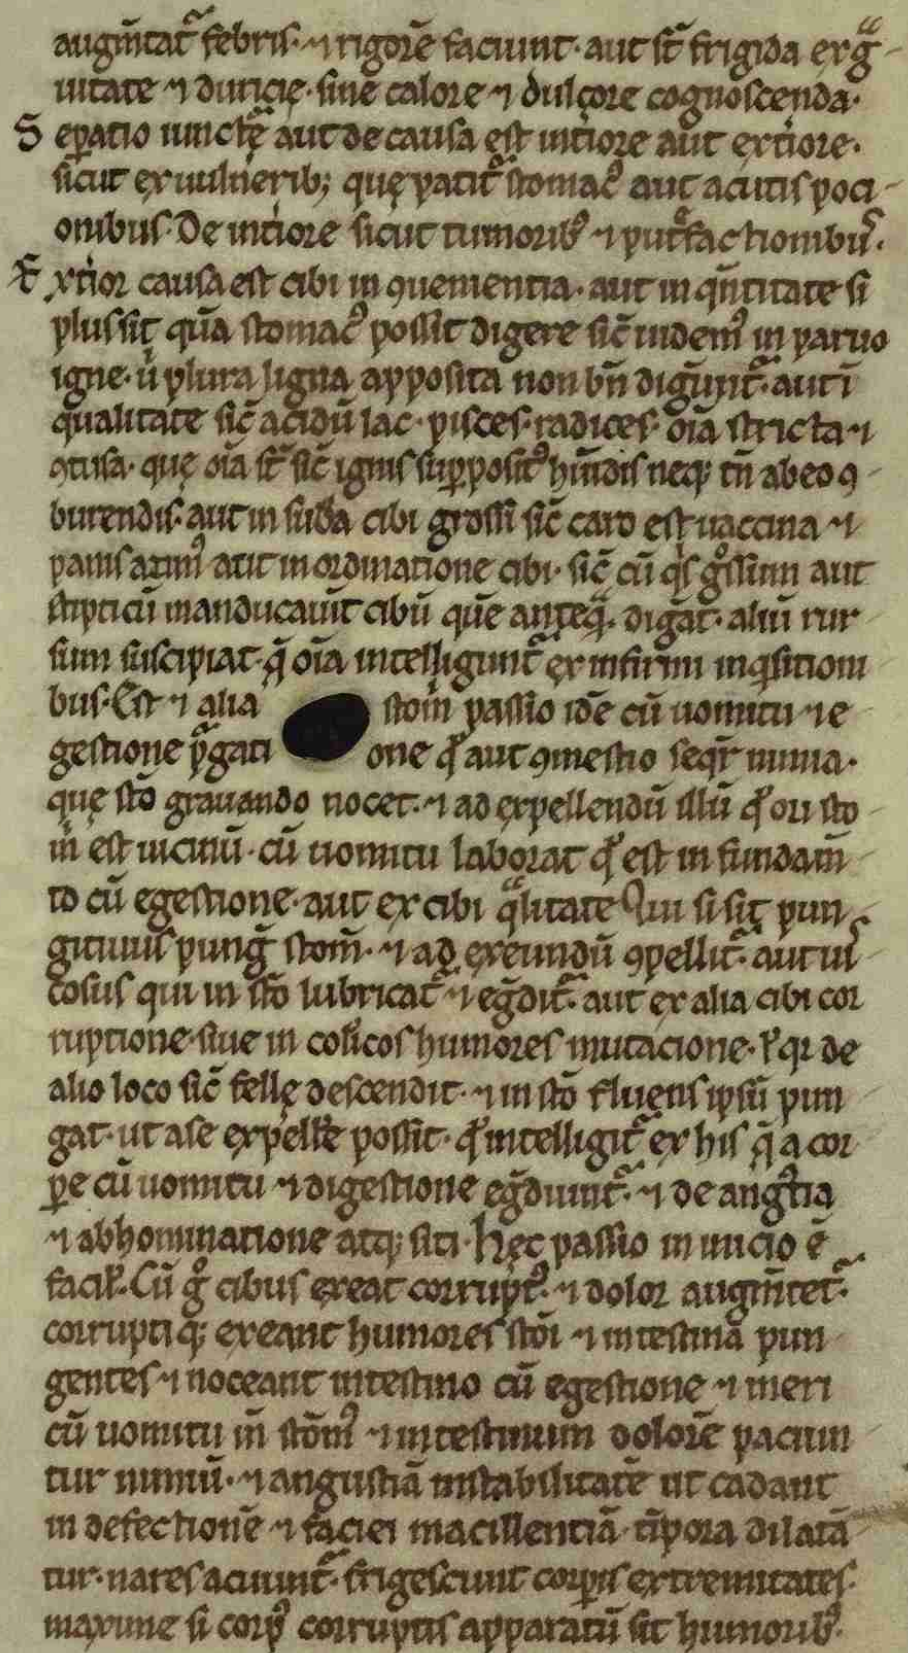 augm̄tat᷑ febris· ⁊ rigorē faciunt· aut st̄ frigida ex gͣ-
uitate ⁊ duricię· sine calore ⁊ dulcore cognoscenda·
Seꝑatio iunctę aut de causa est int̄iore aut ext̄iore·
sicut ex uulnerib; quę patit᷑ stomacꝰ aut acutis poci-
onibus· De int̄iore sicut tumoribꝰ ⁊ putͤfactionibus᷑·
Ext̄ior causa est cibi inꝯuenientia· aut in qn̄titate si
plus sit quā stomacꝰ possit digere sic̄ uidemꝰ in paruo
igne· ū plura ligna apposita non bn̄ digūnt᷑· aut ī
qualitate sic̄ acidū lac· pisces· radices· oīa stricta ⁊
ꝯtusa· quę oīa st̄ sic̄ ignis suꝑpositꝰ hūidis neq; tn̄ ab eo ꝯ-
burendis· aut in sub̄a cibi grossi sic̄ caro est uaccina ⁊
panis azimꝰ aut in ordinatione cibi· sic̄ cū qͥs gͦssum aut
stipticū manducauīt cibū quē anteqͣ· digāt· aliū rur
sum suscipiat· q̄ oīa intelligunt᷑ ex infirmi inqͥsitioni
bus· Est ⁊ alia stom̄ passio idē cū uomitu ⁊ e
gestione pͥgati one qͦ aut ꝯmestio seqͥt᷑ nimia·
quę sto̅ grauando nocet· ⁊ ad expellendū illū qͦ ori sto
m̄ est uicinū· cū uomitu laborat qͦ est in fundam̄
to cū egestione· aut ex cibi qͣlitate Qui si sit pun
gitiuus pung̅ stom̄· ⁊ ad exeundū ꝯpellit᷑· aut uis
cosus qui in sto̅ lubricat᷑ ⁊ eg̅dit᷑· aut ex alia cibi cor
ruptione· siue in colicos humores mutacione· ł qr de
alio loco sic̄ fellę descendit· ⁊ in sto̅ fluens ipsū pun
gat· ut a se expellͤe possit· qͦ intelligit᷑ ex his q̄ a cor
ꝑe cū uomitu ⁊ digestione eg̅diunt᷑· ⁊ de angͥtia
⁊ abhominatione atq; siti· Hęc passio in inicio ē
facil̕· Cū gͦ cibus exeat corruptꝰ· ⁊ dolor augm̄tet᷑·
corruptiq; exeant humores stōi ⁊ intestina pun
gentes ⁊ noceant intestino cū egestione ⁊ meri
cū uomitu in̄ stōmꝰ ⁊ intestinum dolorē paciun
tur nimiū· ⁊ angustiā instabilitatē ut cadant
in defectionē ⁊ faciei macillentiā· tīpora dilatā
tur· nares acuunt᷑· frigescunt corꝑis extremitates·
maxime si corpꝰ corruptis apparatū sit humoribꝰ·